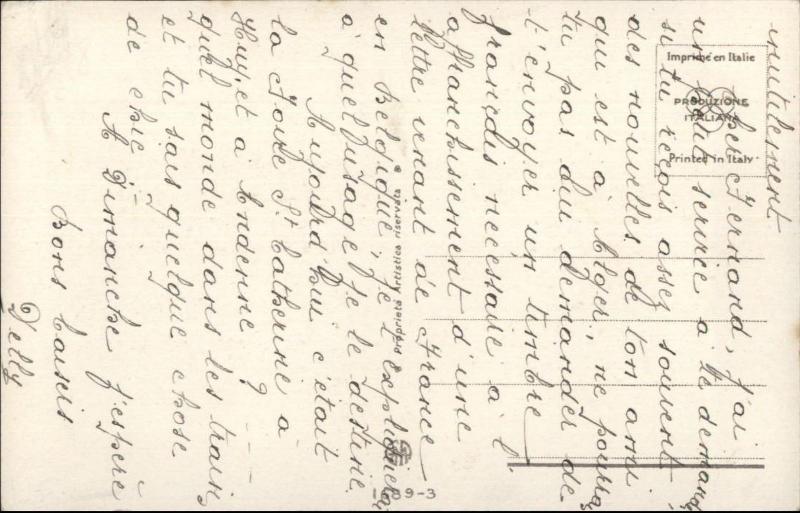 inutilement
Cher Fernand, j'ai
un petit service à te demander
si tu reçois assez souvent
des nouvelles de ton ami
qui est à Alger, ne pourrais
tu pas lui demander de
t'envoyer un timbre
français necessaire à l'
affranchissement d'une
lettre venant de France
en Belgique, je t'expliquerai
à quel usage je le destine.
Aujourd'hui c'était
la foire St Catherine à
Huy, et à Andenne?
quel monde dans les trains
et tu sais quelque chose
de chic
A Dimanche j'espère
Bons baisers
Delly
Imprimé en Italie
PRODUZIONE
ITALIANA
Printed in Italy
Proprietà Artistica riservata
09-3